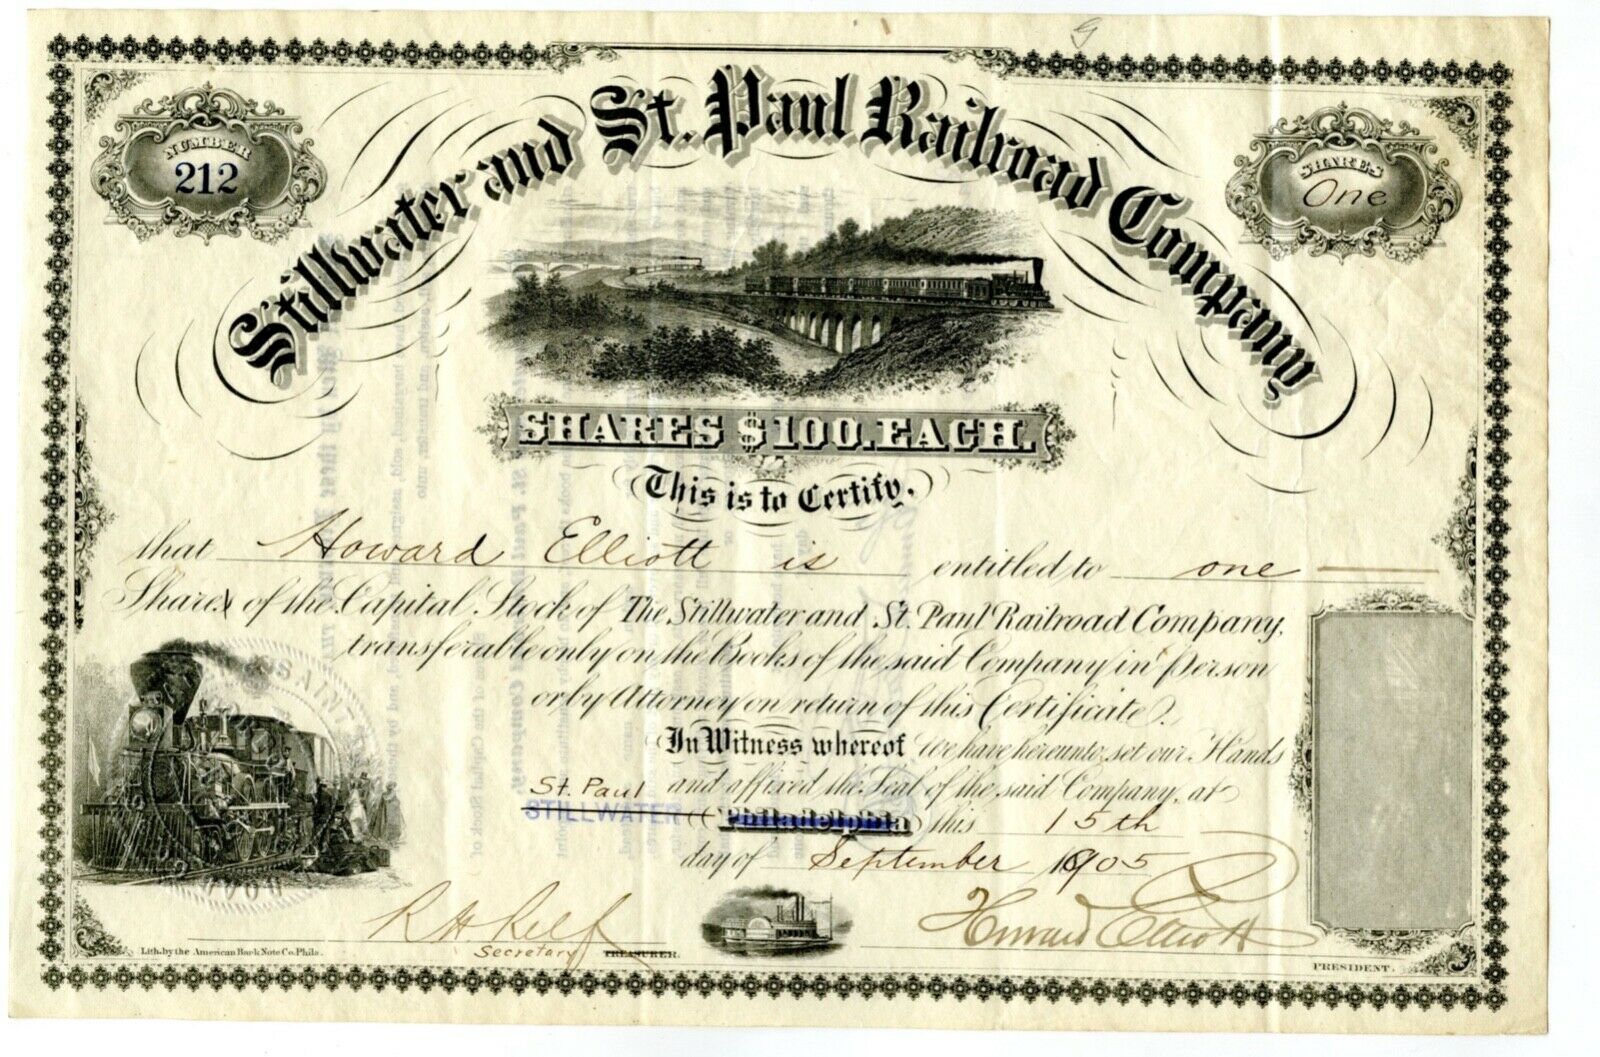 NUMBER
212
Stillwater and St. Paul Railroad Company
SHARES
One
SHARES $100. EACH.
This is to Certify,
that Howard Elliott is entitled to one
Shares of the Capital Stock of The Stillwater and St. Paul Railroad Company,
transferable only on the Books of the said Company in Person
or by Attorney on return of this Certificate.
In Witness whereof We have hereunto set our Hands
and affixed the Seal of the said Company, at
St. Paul
STILLWATER Philadelphia this 15th
day of September 1905
R H Relf
Secretary TREASURER.
Howard Elliott
PRESIDENT.
Lith. by the American Bank Note Co. Phila.